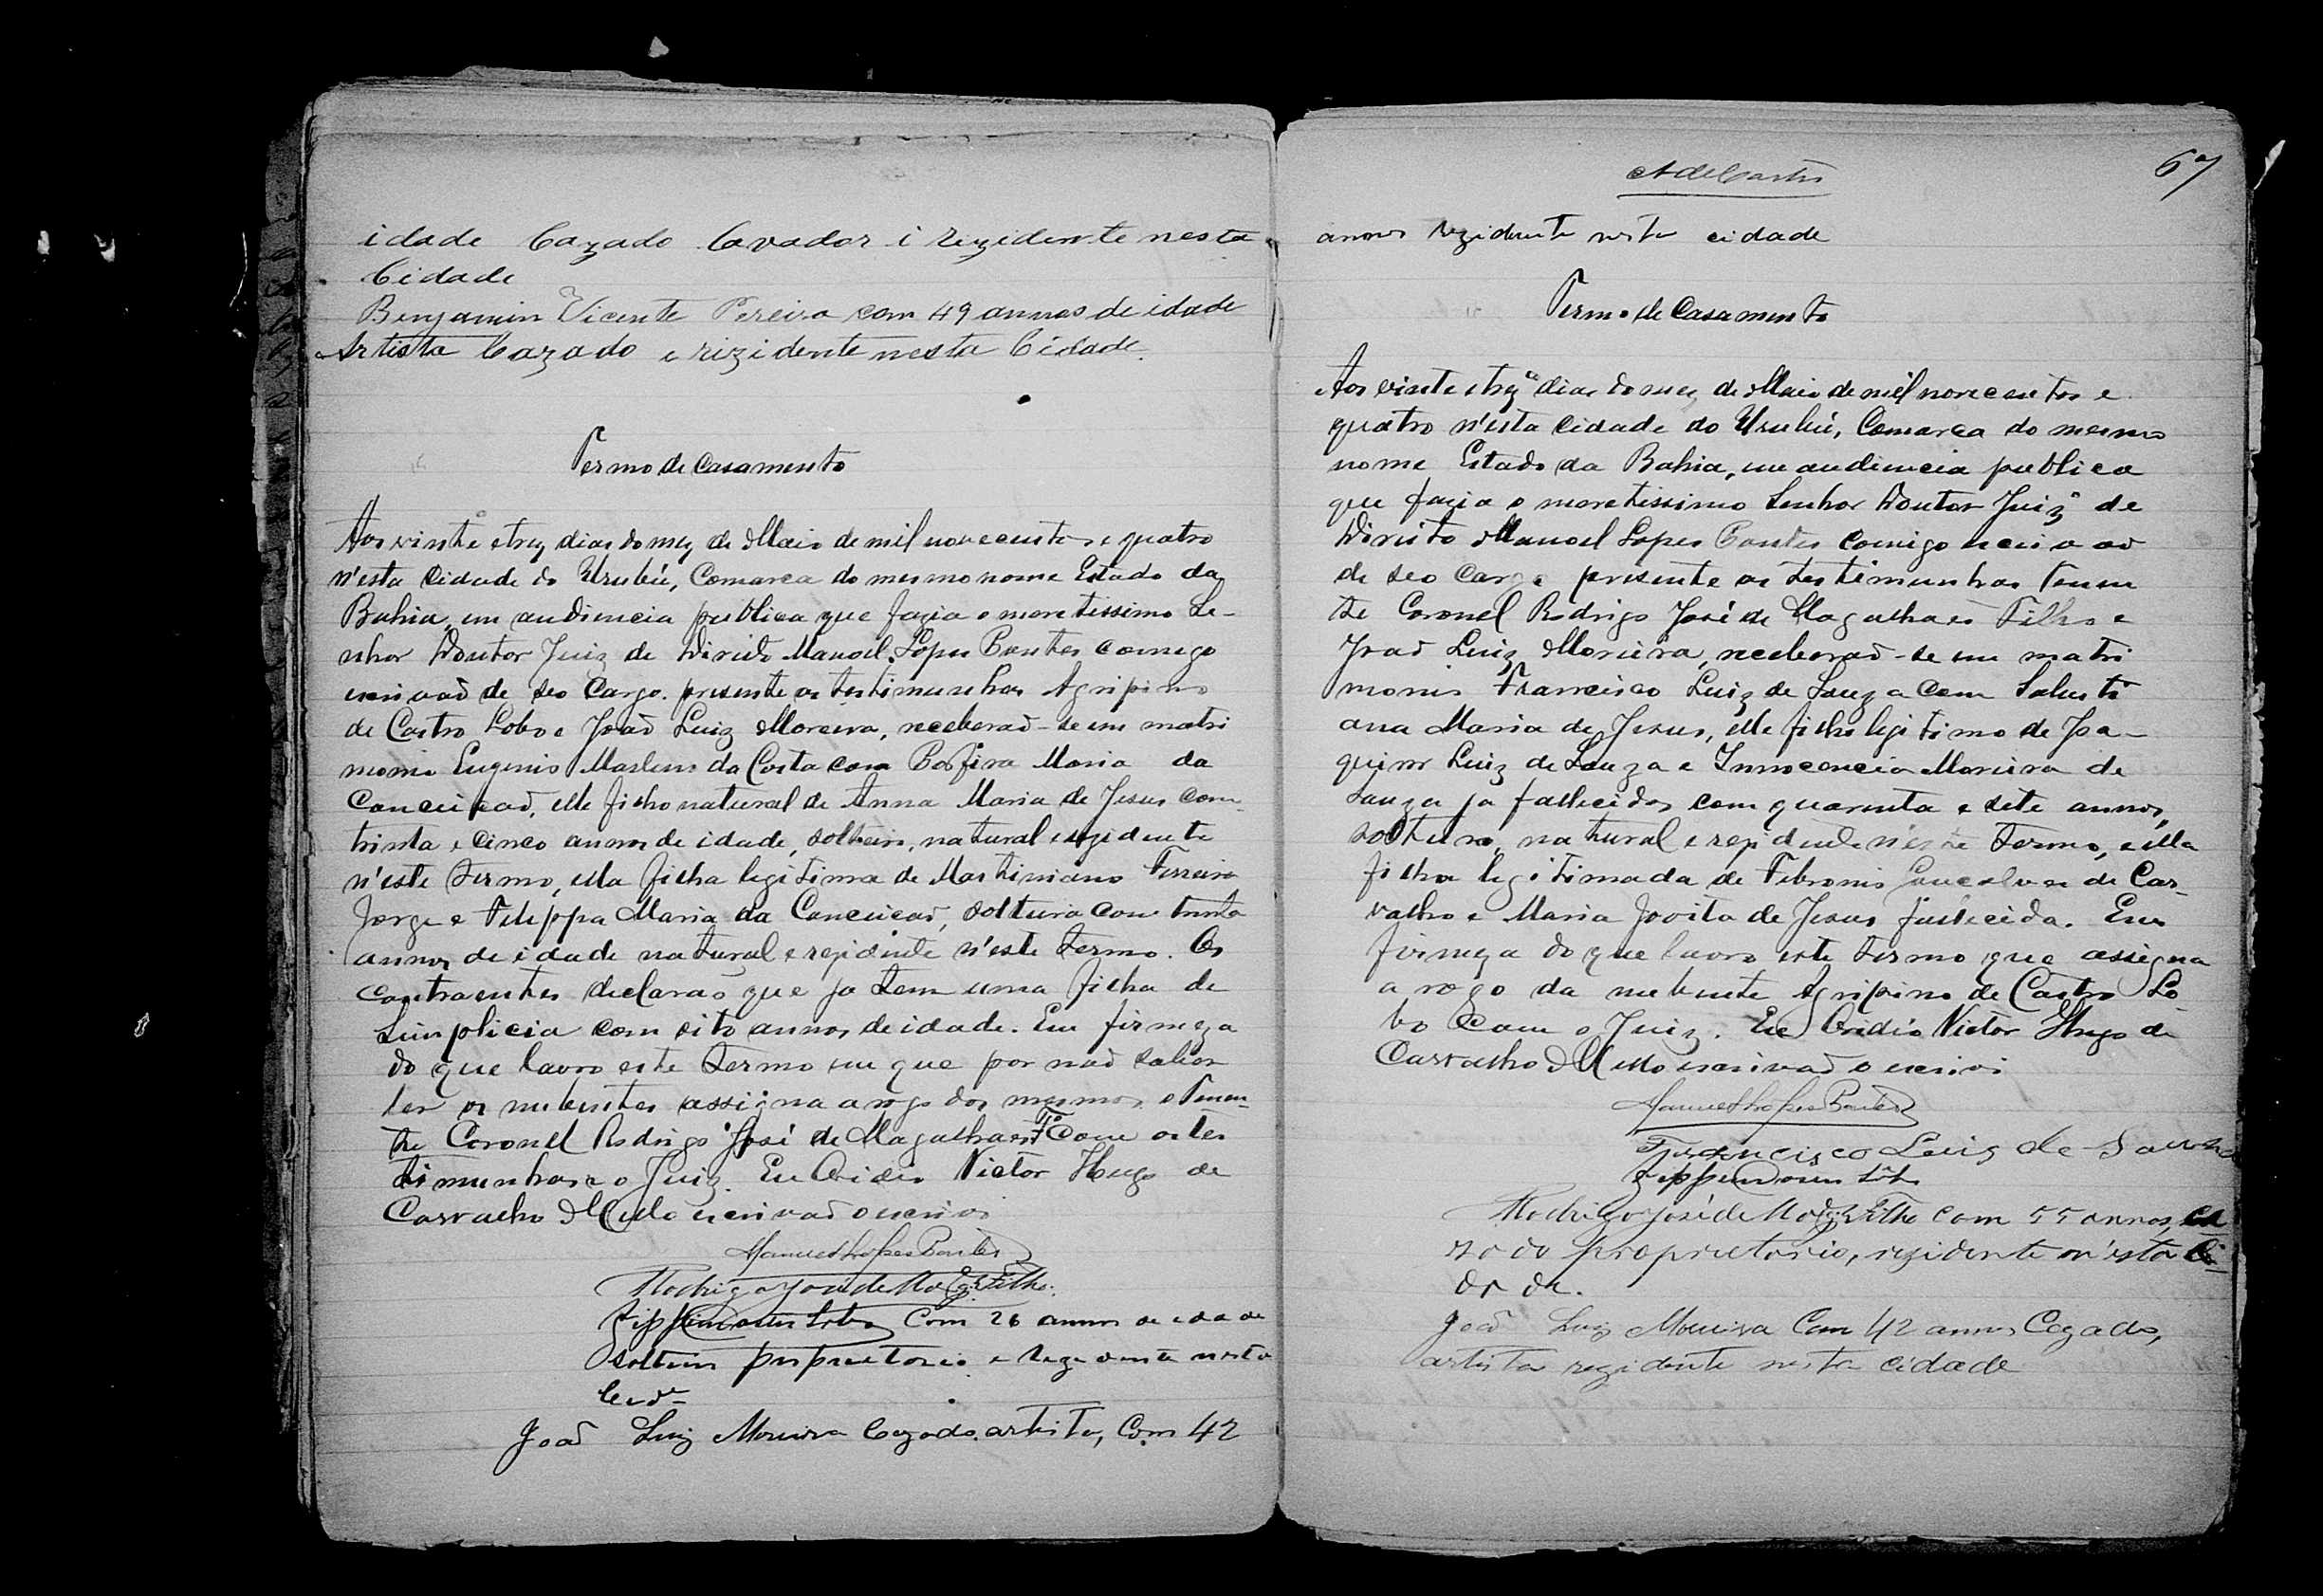 idade Cazado Lavador i rezidente nesta
Cidade
Benjamin Vicente Pereira com 49 annos de idade
Artista Cazado e rizidente nesta Cidade.
Termo de Casamento
Aos vinte e trez dias do mez de Maio de mil novecentos e quatro
n'esta Cidade do Urubú, Comarca do mesmo nome Estado da
Bahia, em audiencia publica que fazia o meretissimo Se-
nhor Doutor Juiz de Direito Manoel Lopes Pontes comigo
escrivaõ de seo Cargo. presente as testimunhas Agripino
de Castro Lobo e Joaõ Luiz Moreira, receberaõ-se em matri
monio Eugenio Martins da Costa com Porfira Maria da
Conceicaõ, elle filho natural de Anna Maria de Jesus com
trinta e cinco annos de idade, solteiro, natural e rezidente
n'este Termo, ella filha legitima de Martiniano Ferreira
Jorge e Felippa Maria da Conceicaõ, solteira com trinta
annos de idade natural e rezidente n'este termo. Os
contraentes declaraõ que ja tem uma filha de
Simplicia com oito annos de idade. Em firmeza
do que lavro este termo em que por naõ saber
ler os nubentes assigna a rogo dos mesmos o Tenen-
te Coronel Rodrigo José de Magalhaes Fº Com as tes
timunhas e o Juiz. Eu Ovidio Victor Hugo de
Carvalho Mello escrivaõ o escrivi
Manuel Lopes Pontes
Rodrigo José de Magᵉˢ Filho.
Com 26 annos de idade
solteiro proprietario e rezidente nesta
Cidᵉ
Joaõ Luiz Moreira Cazado artista, Com 42
67
A de Castro
annos rezidente nesta cidade
Termo de Casamento
Aos vinte e trez dias do mez de Maio de mil novecentos e
quatro n'esta Cidade do Urubú, Comarca do mesmo
nome Estado da Bahia, em audiencia publica
que fazia o meretissimo Senhor Doutor Juiz de
Direito Manoel Lopes Pontes comigo escrivaõ
de seo Cargo presente as testimunhas Tenen
te Coronel Rodrigo José de Magalhaes Filho e
Joaõ Luiz Moreira, receberaõ-se em matri
monio Francisco Luiz de Souza com Salusti
ana Maria de Jesus, elle filho legitimo de Joa-
quim Luiz de Souza e Innocencia Moreira de
Souza ja fallecidos com quarenta e sete annos,
solteiro, natural e rezidente n'este Termo, e ella
filha legitimada de Febronio Goncalves de Car-
valho e Maria Jovita de Jesus fallecida. Em
firmeza do que lavro este termo que assigna
a rogo da nubente Agripino de Castro Lo
bo Com o Juiz. Eu Ovidio Victor Hugo de
Carvalho Mello escrivaõ o escrivi
Manuel Lopes Pontes
Francisco Luis de Souza
Rodrigo José de Magᵉˢ Filho com 55 annos, ca
zado proprietario, rezidente n'esta Ci-
dade.
Joaõ Luiz Moreira Com 42 annos Cazado,
artista rezidente nesta cidade